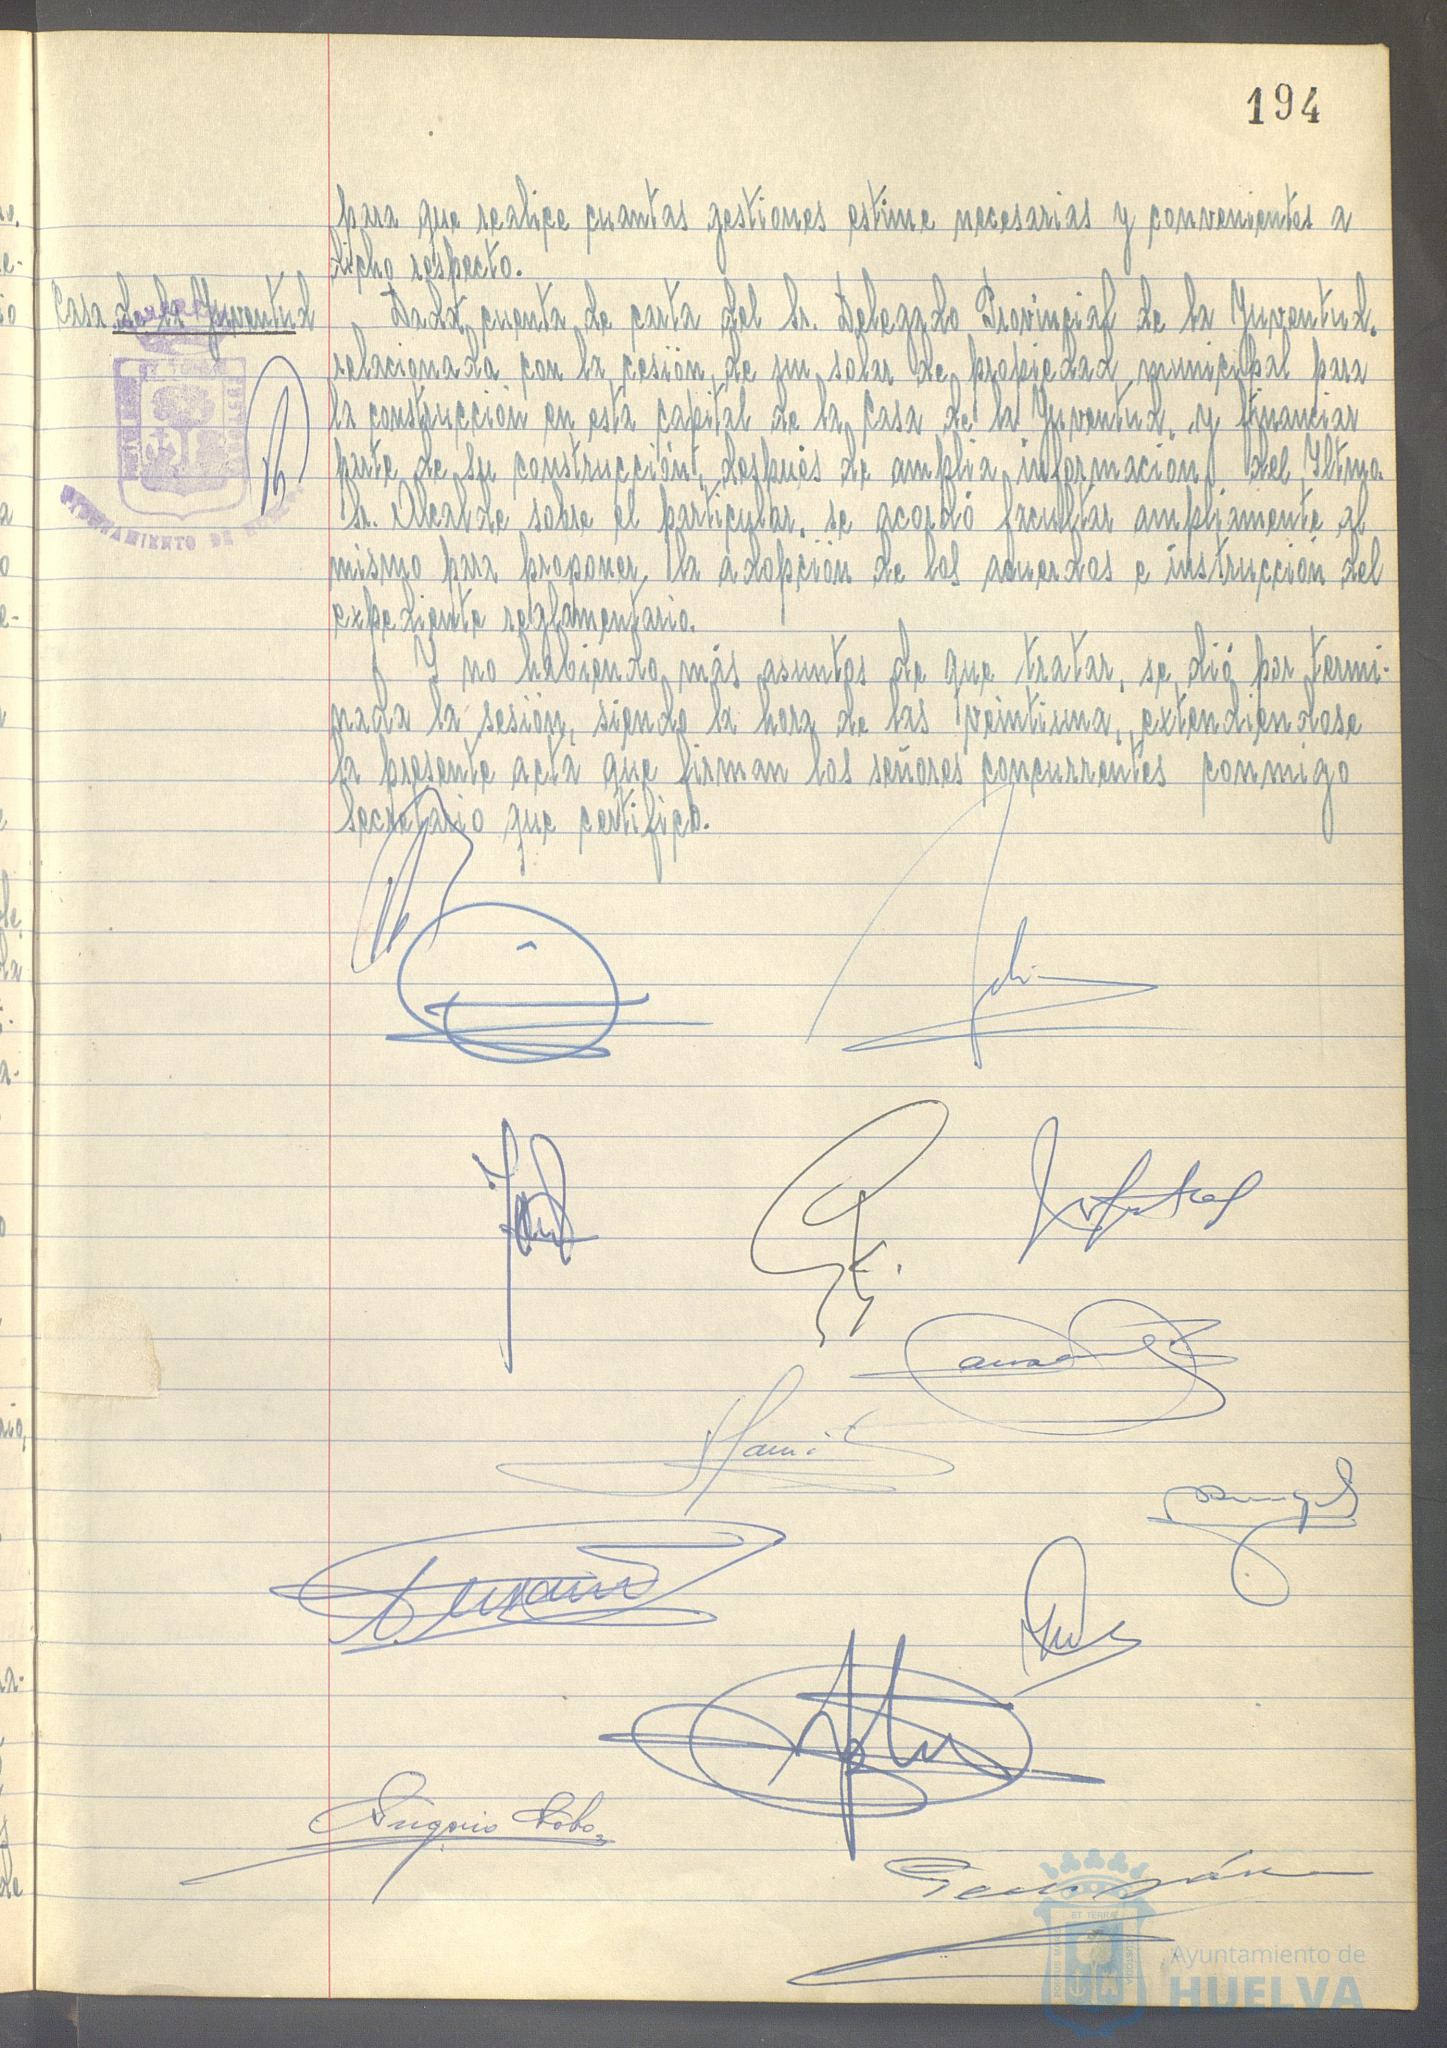 194
para que realice cuantas gestiones estime necesarias y convenientes a
dicho respecto.
Casa de la Juventud
Dada cuenta de carta del Sr. Delegado Provincial de la Juventud.
relacionada con la cesión de un solar de propiedad municipal para
la construcción en esta capital de la Casa de la Juventud, y financiar
parte de su construcción, después de amplia información del Iltmo.
Sr. Alcalde sobre el particular, se acordó facultar ampliamente al
mismo para proponer la adopción de los acuerdos e instrucción del
expediente reglamentario.
Y no habiendo más asuntos de que tratar, se dió por termi-
nada la sesión, siendo la hora de las veintiuna, extendiendose
la presente acta que firman los señores concurrentes conmigo
Secretario que certifico.
AYUNTAMIENTO DE
Ayuntamiento de
HUELVA